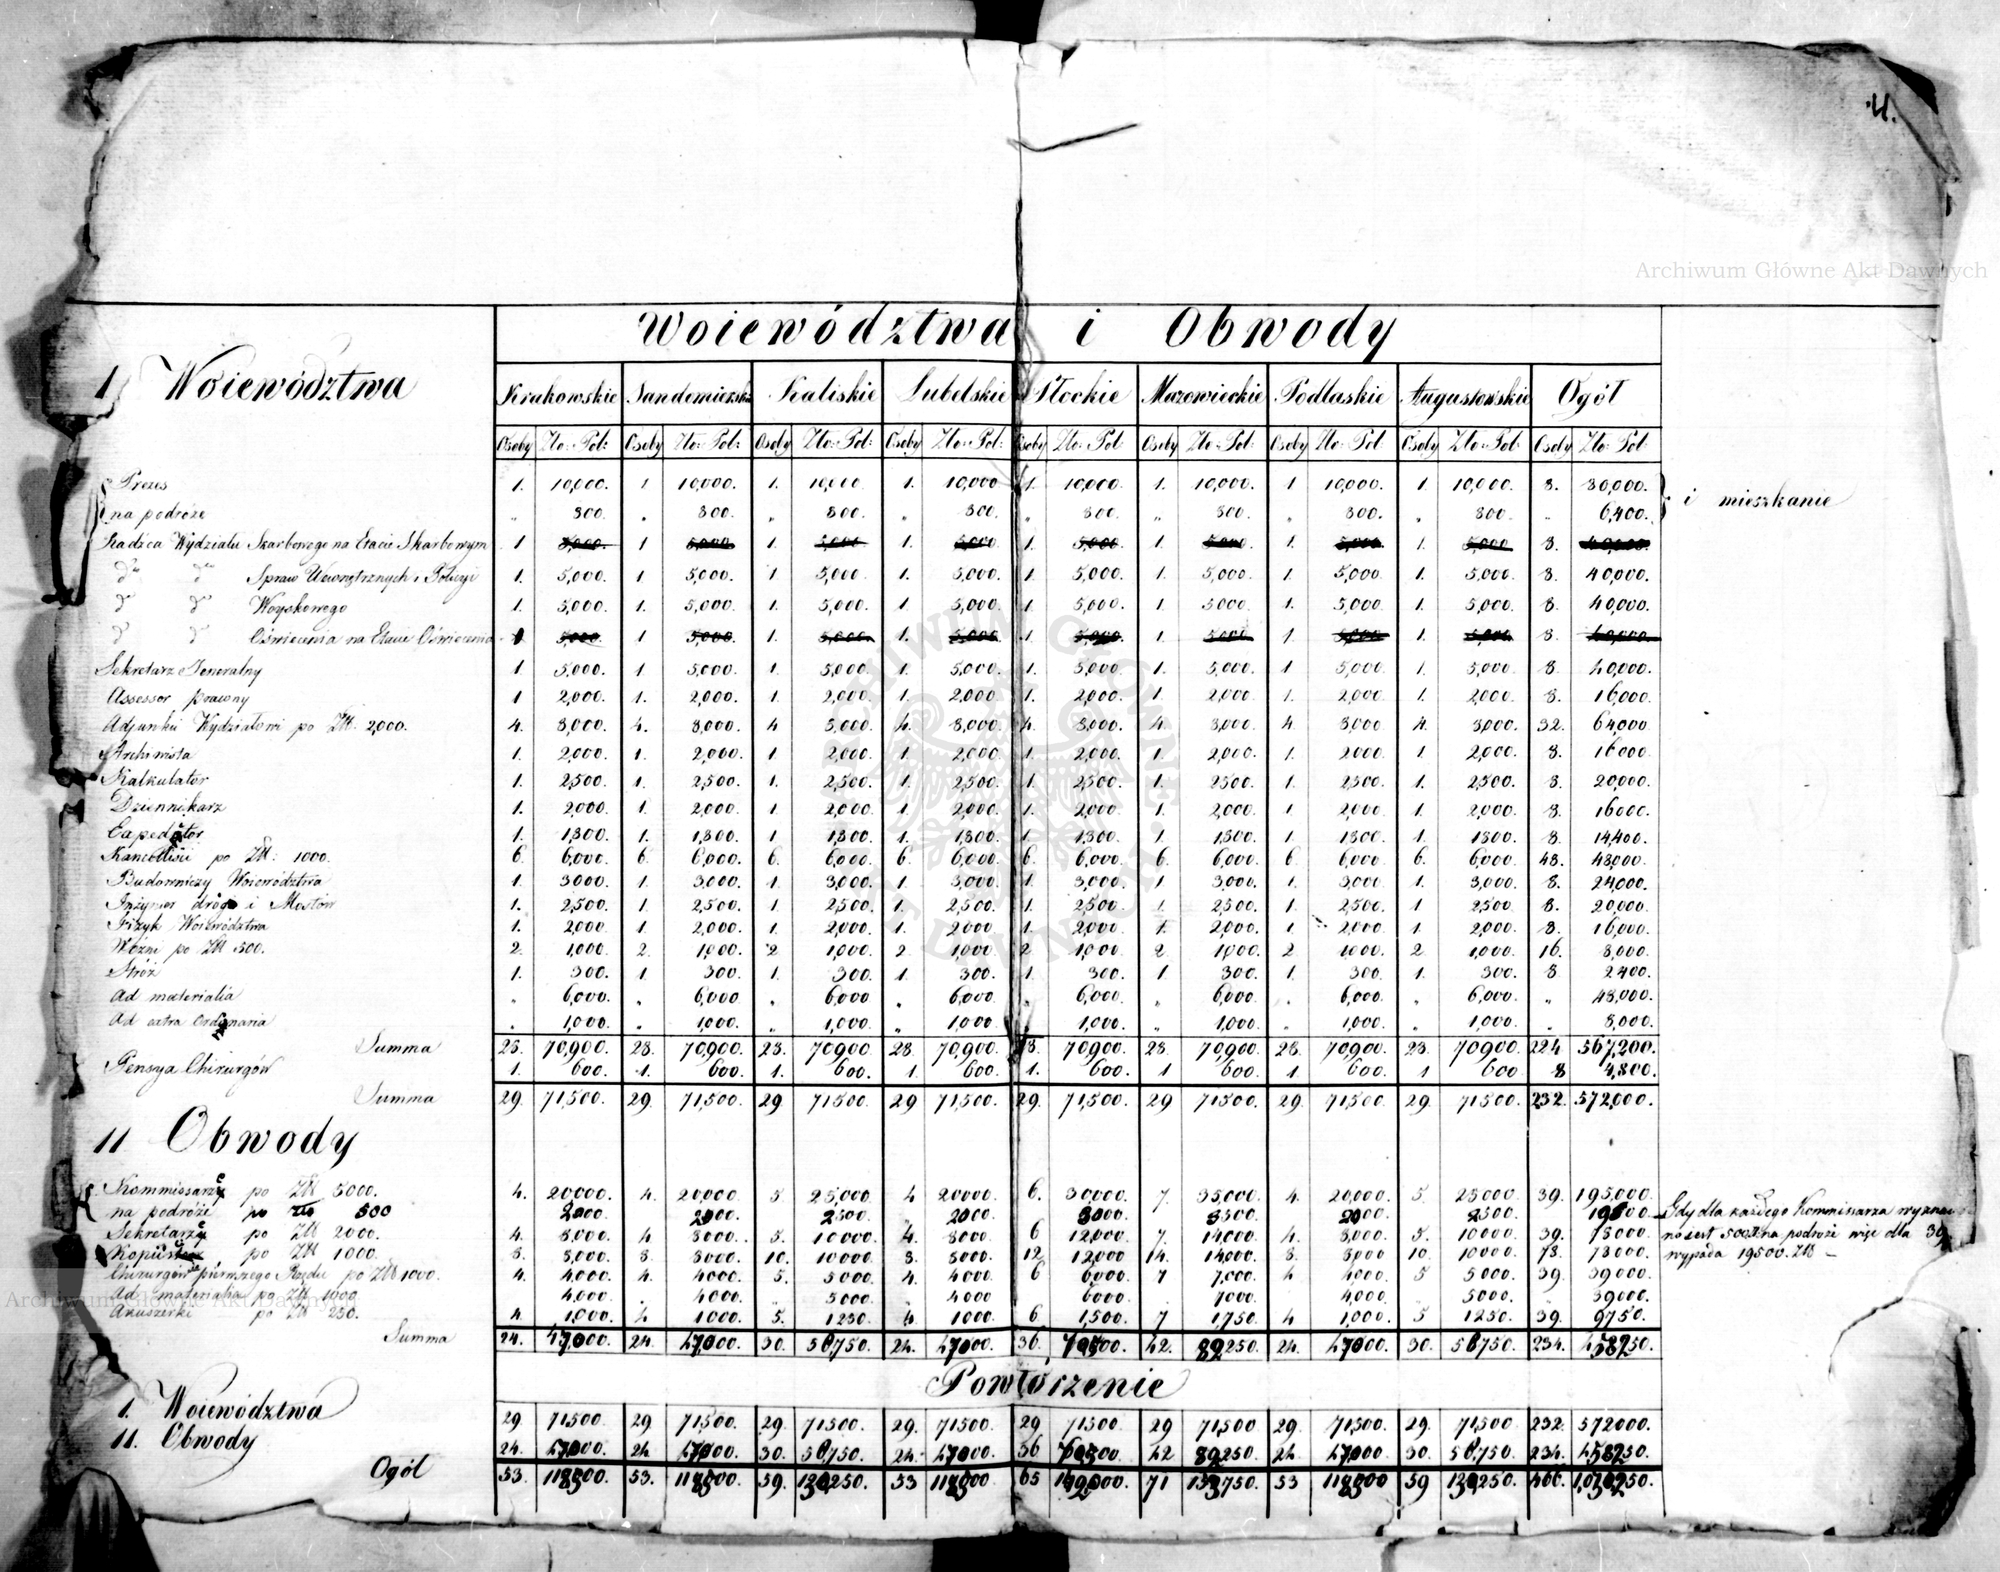 4.
Archiwum Główne Akt Dawnych
Woiewództwa i Obwody
I Woiewództwa
Krakowskie Sandomierskie Kaliskie Lubelskie Płockie Mazowieckie Podlaskie Augustowskie Ogół
Osoby Zło: Pol: Osoby Zło: Pol: Osoby Zło: Pol: Osoby Zło: Pol: Osoby Zło: Pol Osoby Zło: Pol: Osoby Zło: Pol: Osoby Zło: Pol: Osoby Zło: Pol
Prezes 1. 10,000. 1 10,000. 1. 10,000 1. 10,000 1. 10,000 1. 10,000. 1 10,000. 1 10,000. 8. 80,000. i mieszkanie
na podróże " 800. " 800. " 800. " 800. " 800. " 800. " 800. " 800 " 6,400.
Radzca Wydziału Skarbowego na Etacie Skarbowym 1 5,000. 1 5,000 1. 5,000 1. 5,000 1. 5,000 1. 5000 1. 5,000 1. 5,000 8. 40,000.
do do Spraw Wewnętrznych i Policyi 1. 5,000. 1 5,000. 1. 5,000. 1. 5,000. 1. 5,000. 1. 5,000. 1. 5,000. 1. 5,000. 8. 40,000.
do do Woyskowego 1. 5,000. 1. 5,000. 1. 5,000. 1. 5,000. 1. 5,000. 1. 5000 1. 5,000 1. 5,000. 8. 40,000.
do do Oświecenia na Etacie Oświecenia 1 5,000 1 5,000 1. 5,000. 1. 5,000 1. 5,000 1. 5,000 1. 5,000 1. 5,000 8. 40,000.
Sekretarz Jeneralny 1 5,000. 1. 5,000 1 5,000. 1. 5,000. 1 5,000. 1. 5,000. 1 5,000 1 5,000. 8 40,000.
Assessor prawny 1 2,000. 1. 2,000. 1. 2,000. 1. 2,000 1. 2,000. 1. 2,000. 1. 2,000 1. 2,000 8. 16,000.
Adjunkci Wydziałowi po Zł. 2,000. 4. 8,000. 4. 8,000. 4 8,000. 4. 8,000. 4. 8,000. 4. 8,000. 4 8,000 4. 8,000. 32. 64,000
Archiwista 1 2,000. 1. 2,000. 1. 2,000. 1. 2,000. 1. 2,000. 1. 2,000. 1. 2000 1. 2,000 8. 16,000.
Kalkulator 1. 2,500. 1. 2,500. 1. 2,500. 1. 2,500. 1. 2,500. 1. 2500. 1. 2,500 1. 2,500. 8 20,000.
Dziennikarz 1. 2,000. 1. 2,000. 1. 2,000. 1. 2,000. 1. 2,000. 1. 2,000. 1. 2,000. 1. 2,000. 8. 16,000.
Expedytor 1. 1,800. 1. 1,800. 1. 1,800. 1. 1,800. 1. 1,800. 1. 1,800. 1. 1,800 1. 1800. 8. 14,400.
Kancellisci po Zł: 1000. 6. 6,000. 6. 6,000. 6. 6,000. 6. 6,000. 6. 6,000. 6. 6,000. 6. 6,000. 6. 6,000 48. 48,000.
Budowniczy Woiewództwa 1. 3000. 1. 3,000. 1. 3,000. 1. 3,000. 1. 3,000. 1. 3,000. 1. 3,000. 1. 3,000. 8. 24,000.
Inżynier dróg i Mostów 1. 2,500. 1. 2,500. 1. 2,500. 1. 2,500. 1. 2,500. 1. 2,500. 1. 2,500. 1. 2,500 8. 20,000.
Fizyk Woiewództwa 1. 2000. 1. 2,000. 1. 2,000. 1. 2000 1. 2,000. 1. 2,000. 1. 2,000. 1. 2,000. 8. 16,000.
Wozni po Zł 500. 2. 1,000. 2. 1,000. 2 1,000. 2. 1,000 2 1,000. 2 1,000. 2 1,000. 2. 1,000. 16. 8,000.
Stróż 1. 300. 1. 300. 1. 300. 1. 300. 1. 300. 1 300. 1. 300. 1. 300. 8 2400.
Ad materialia " 6,000. " 6,000 " 6,000 " 6,000 " 6,000. " 6,000. " 6,000. " 6,000. " 48,000.
Ad extra ordynaria " 1,000. " 1,000. " 1,000. " 1,000. " 1,000. " 1,000. " 1,000. " 1,000. " 8,000.
Summa 28. 70,900. 28. 70,900. 28. 70,900 28. 70,900. 28. 70,900. 28. 70,900. 28. 70,900. 28. 70,900. 224 567,200.
Pensya Chirurgów 1. 600. 1. 600. 1. 600. 1. 600. 1. 600. 1 600. 1. 600. 1 600 8 4,800.
Summa 29. 71,500. 29. 71,500. 29 71500. 29 71,500. 29. 71,500. 29 71500. 29. 71,500 29. 71500. 232. 572,000.
II Obwody
Kommissarzy po Zł 5000. 4. 20,000. 4. 20,000. 5. 25,000. 4 20000. 6. 30,000. 7. 35,000. 4. 20,000. 5. 25000. 39. 195,000.
na podróże po Zł 500 2000. 2000. 2500 2000 3000. 3500. 2000 2500. 19500 Gdy dla każdego Kommissarza wyzna
Sekretarzy po Zł 2000. 4. 8,000. 4 8000. 5. 10000. 4. 8000 6 12,000. 7. 14,000 4. 8,000. 5. 10000. 39. 78000. no iest 500 Zł na podróże więc dla 39
Kopistów po Zł 1000. 8. 8,000. 8. 8000. 10. 10000. 8. 8000. 12. 12,000 14. 14,000. 8. 8000 10. 10000. 78. 78000. wypada 19500. Zł
Chirurgów pierwszego Rzędu po Zł 1000. 4. 4,000. 4. 4000. 5. 5000. 4. 4000 6 6000. 7 7,000. 4 4000. 5 5000. 39. 39000.
Archiwum Główne Akt Dawnych
Ad materialia po Zł 1000 4,000. 4000. 5000. 4000 6000. 7000. 4,000. 5000. 39000.
Akuszerki po Zł 250. 4. 1,000. 4 1000. 5. 1250. 4. 1000. 6. 1,500. 7 1,750. 4 1,000. 5 1250. 39. 9750.
Summa 24. 47,000. 24. 47000. 30. 58,750. 24. 47000. 36. 70500. 42. 82250. 24. 47000. 30. 58750. 234. 458250.
Powtórzenie
I. Woiewództwa 29 71500. 29 71,500. 29. 71500. 29. 71500. 29 71500. 29 71,500 29. 71,500. 29. 71,500 232. 572000.
II. Obwody 24. 47,000. 24. 47000. 30. 58,750. 24. 47000. 36 70500. 42 82250. 24. 47,000. 30. 58,750. 234. 458250.
Ogół 53. 118500. 53. 118500. 59. 130,250. 53 118500. 65 142000. 71 153750. 53 118500 59 130,250. 466. 1,030250.